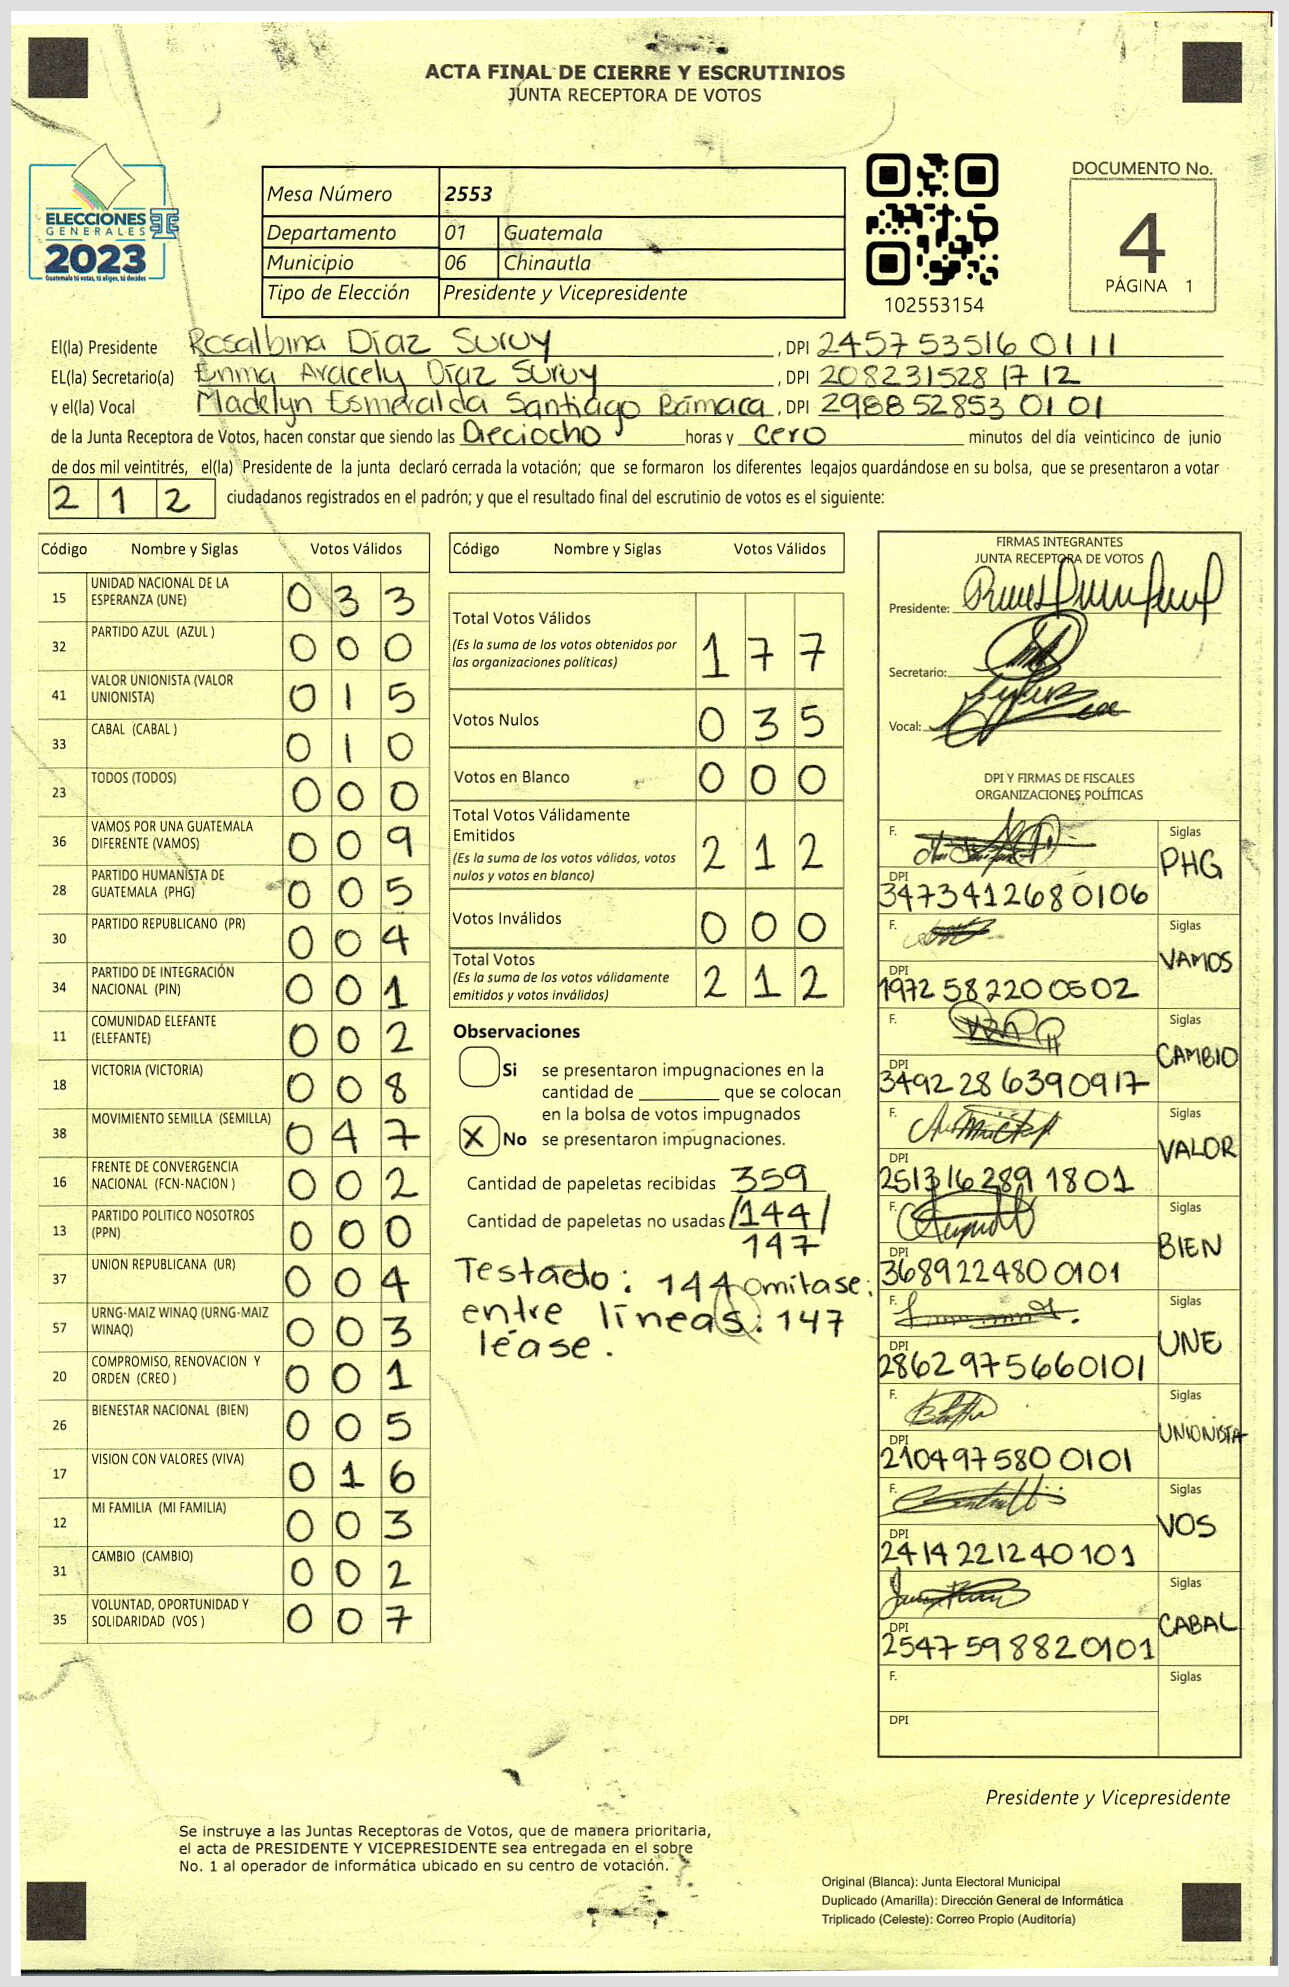 ACTA FINAL DE CIERRE Y ESCRUTINIOS
JUNTA RECEPTORA DE VOTOS
ELECCIONES
GENERALES
2023
Guatemala tú votas, tú eliges, tú decides
Mesa Número 2553
Departamento 01 Guatemala
Municipio 06 Chinautla
Tipo de Elección Presidente y Vicepresidente
102553154
DOCUMENTO No.
4
PÁGINA 1
El(la) Presidente Rosalbina Díaz Suruy , DPI 2457 53516 0111
EL(la) Secretario(a) Enma Aracely Díaz Suruy , DPI 208231528 1712
y el(la) Vocal Madelyn Esmeralda Santiago Bámaca , DPI 298852853 0101
de la Junta Receptora de Votos, hacen constar que siendo las Dieciocho horas y cero minutos del día veinticinco de junio
de dos mil veintitrés, el(la) Presidente de la junta declaró cerrada la votación; que se formaron los diferentes legajos guardándose en su bolsa, que se presentaron a votar
2 1 2 ciudadanos registrados en el padrón; y que el resultado final del escrutinio de votos es el siguiente:
Código Nombre y Siglas Votos Válidos
15 UNIDAD NACIONAL DE LA ESPERANZA (UNE) 0 3 3
32 PARTIDO AZUL (AZUL ) 0 0 0
41 VALOR UNIONISTA (VALOR UNIONISTA) 0 1 5
33 CABAL (CABAL ) 0 1 0
23 TODOS (TODOS) 0 0 0
36 VAMOS POR UNA GUATEMALA DIFERENTE (VAMOS) 0 0 9
28 PARTIDO HUMANISTA DE GUATEMALA (PHG) 0 0 5
30 PARTIDO REPUBLICANO (PR) 0 0 4
34 PARTIDO DE INTEGRACIÓN NACIONAL (PIN) 0 0 1
11 COMUNIDAD ELEFANTE (ELEFANTE) 0 0 2
18 VICTORIA (VICTORIA) 0 0 8
38 MOVIMIENTO SEMILLA (SEMILLA) 0 4 7
16 FRENTE DE CONVERGENCIA NACIONAL (FCN-NACION ) 0 0 2
13 PARTIDO POLITICO NOSOTROS (PPN) 0 0 0
37 UNION REPUBLICANA (UR) 0 0 4
57 URNG-MAIZ WINAQ (URNG-MAIZ WINAQ) 0 0 3
20 COMPROMISO, RENOVACION Y ORDEN (CREO ) 0 0 1
26 BIENESTAR NACIONAL (BIEN) 0 0 5
17 VISION CON VALORES (VIVA) 0 1 6
12 MI FAMILIA (MI FAMILIA) 0 0 3
31 CAMBIO (CAMBIO) 0 0 2
35 VOLUNTAD, OPORTUNIDAD Y SOLIDARIDAD (VOS ) 0 0 7
Código Nombre y Siglas Votos Válidos
Total Votos Válidos
(Es la suma de los votos obtenidos por
las organizaciones políticas) 1 7 7
Votos Nulos 0 3 5
Votos en Blanco 0 0 0
Total Votos Válidamente
Emitidos
(Es la suma de los votos válidos, votos
nulos y votos en blanco) 2 1 2
Votos Inválidos 0 0 0
Total Votos
(Es la suma de los votos válidamente
emitidos y votos inválidos) 2 1 2
Observaciones
Si se presentaron impugnaciones en la
cantidad de ________ que se colocan
en la bolsa de votos impugnados
X No se presentaron impugnaciones.
Cantidad de papeletas recibidas 359
Cantidad de papeletas no usadas /144/
147
Testado: 144 omitase:
entre líneas: 147
léase.
FIRMAS INTEGRANTES
JUNTA RECEPTORA DE VOTOS
Presidente:
Secretario:
Vocal:
DPI Y FIRMAS DE FISCALES
ORGANIZACIONES POLÍTICAS
F. Siglas
PHG
DPI
3473412680106
F. Siglas
VAMOS
DPI
1972 58 2200502
F. Siglas
CAMBIO
DPI
3492 28 6390917
F. Siglas
VALOR
DPI
2513 16 289 1801
F. Siglas
BIEN
DPI
3689224800101
F. Siglas
UNE
DPI
2862975660101
F. Siglas
UNIONISTA
DPI
210497580 0101
F. Siglas
VOS
DPI
2414221240101
F. Siglas
CABAL
DPI
2547 59 8820101
F. Siglas
DPI
Presidente y Vicepresidente
Se instruye a las Juntas Receptoras de Votos, que de manera prioritaria,
el acta de PRESIDENTE Y VICEPRESIDENTE sea entregada en el sobre
No. 1 al operador de informática ubicado en su centro de votación.
Original (Blanca): Junta Electoral Municipal
Duplicado (Amarilla): Dirección General de Informática
Triplicado (Celeste): Correo Propio (Auditoría)